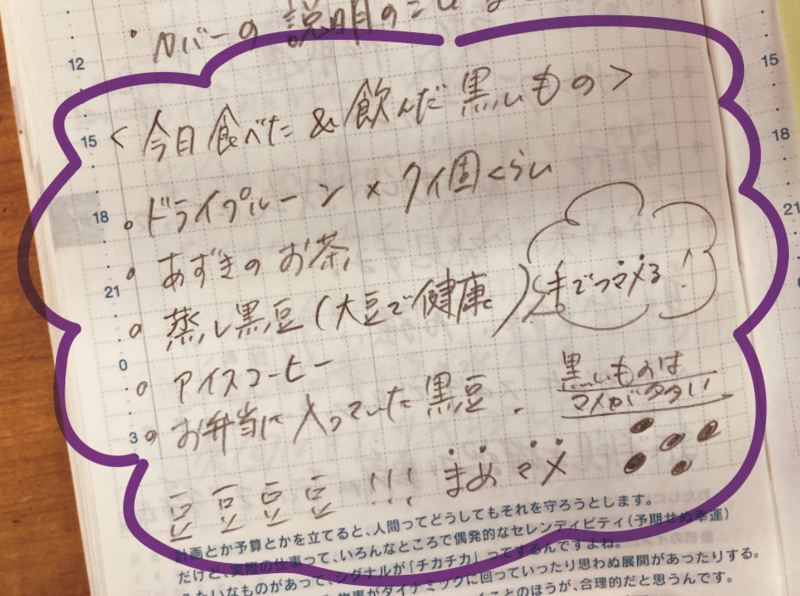 ・カバーの説明の
12
15
<今日食べた&飲んだ黒いもの>
18
。ドライプルーン×7,8個くらい
。あずきのお茶
21
。蒸し黒豆(大豆で健康)手でつマメる!
0
。アイスコーヒー
黒いものは
マメが多い
3
。お弁当に入っていた黒豆.
豆豆豆豆!!!まめマメ
計画とか予算とかを立てると、人間ってどうしてもそれを守ろうとします。
だけど、実際の仕事って、いろんなところで偶発的なセレンディピティ(予期せぬ幸運)
みたいなものがあって、シグナルが「チカチカ」ってするんですよね。
ダイナミックに回っていったり思わぬ展開があったりする。
ことのほうが、合理的だと思うんです。
15
18
21